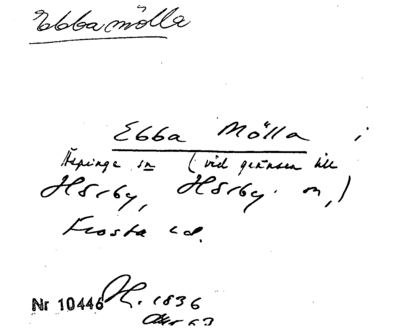 Ebbamölla
Ebba Mölla i
Äspinge sn (vid gränsen till
Hörby, Hörby sn,)
Frosta hd.
Nr 10446 H. 1836